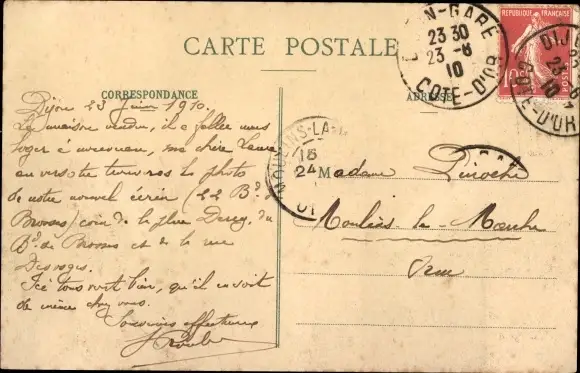 CARTE POSTALE
CORRESPONDANCE
ADRESSE
REPUBLIQUE FRANÇAISE
10c
POSTES
N-GARE
23 30
23 -6
10
COTE-D'OR
DIJ
23
10
COTE-D'OR
MOULINS-LA-
15
24
Dijon 23 Juin 1910.
La maison vendue, il a fallu nous
loger à nouveau, ma chère Laure
au verso tu verras la photo
de notre nouvel écrin (22 Bd de
Brosses) coin de la place Darcy, du
Bd de Brosses et de la rue
Devosges.
Ici tous vont bien, qu'il en soit
de même chez vous.
Souvenirs affectueux
Madame
Moulins-la-Marche
Orne